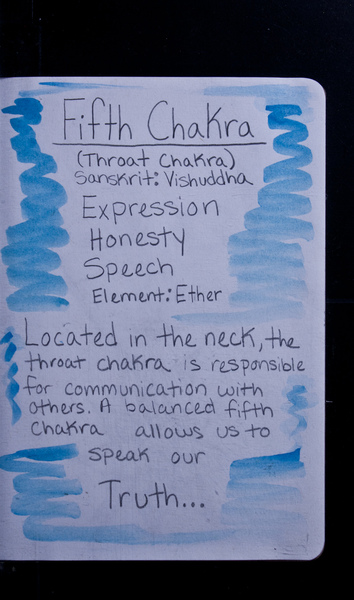 Fifth Chakra
(Throat Chakra)
Sanskrit: Vishuddha
Expression
Honesty
Speech
Element: Ether
Located in the neck, the
throat chakra is responsible
for communication with
others. A balanced fifth
chakra allows us to
speak our
Truth...